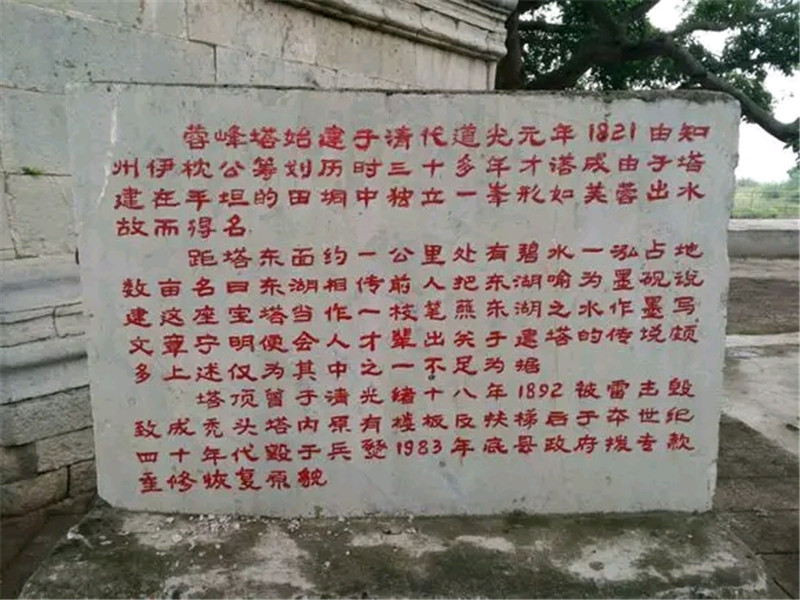 蓉峰塔始建于清代道光元年1821由知
州伊枕公筹划历时三十多年才塔成由于塔
建在平坦的田垌中独立一峯形如芙蓉出水
故而得名
距塔东面约一公里处有碧水一泓占地
数亩名曰东湖相传前人把东湖喻为墨砚说
建这座宝塔当作一枝笔蘸东湖之水作墨写
文章宁明便会人才辈出关于建塔的传说颇
多上述仅为其中之一不足为据
塔顶曾于清光绪十八年1892被雷击毁
致成秃头塔内原有楼板及扶梯后于本世纪
四十年代毁于兵燹1983年底县政府拨专款
重修恢复原貌